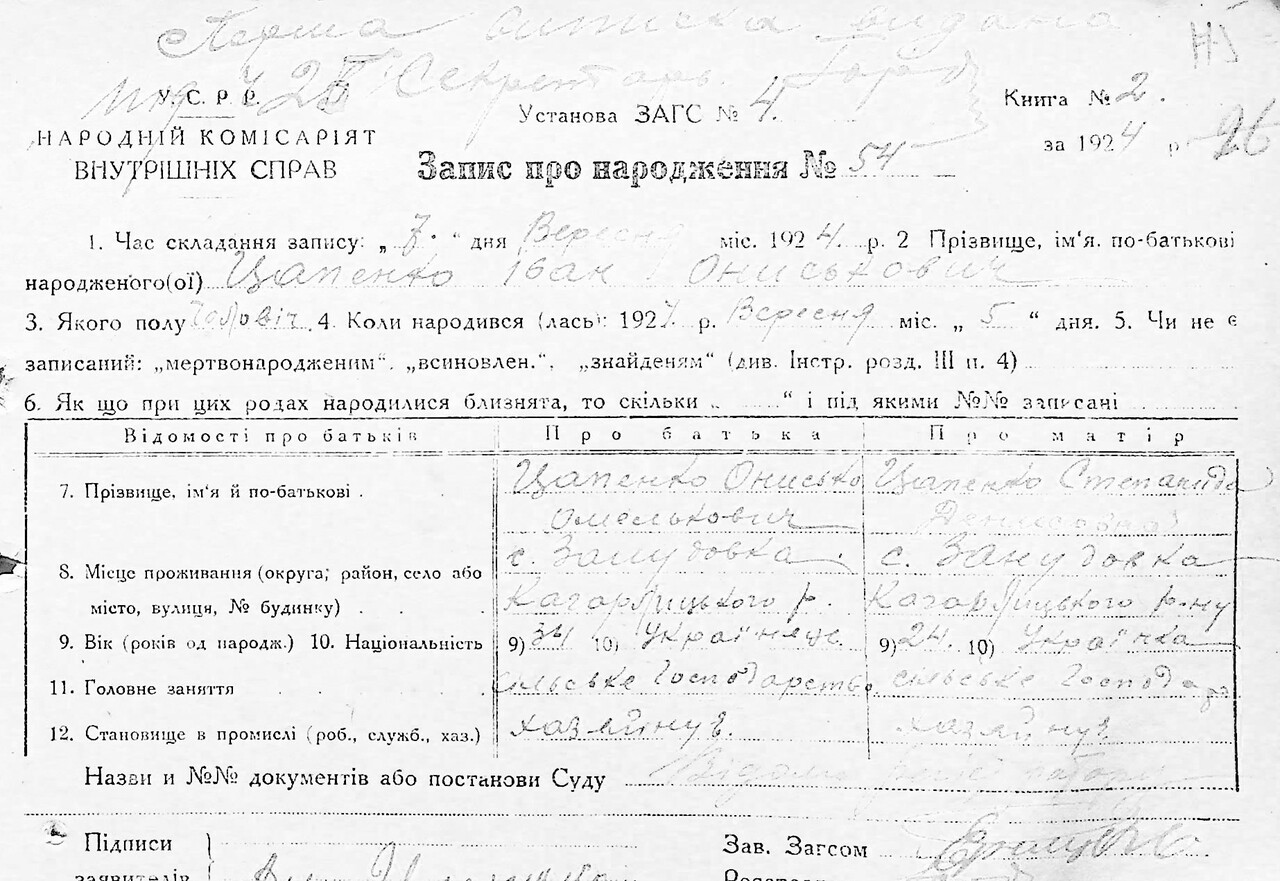 Перша виписка видана
Секретарь
У.С.Р.Р.
НАРОДНІЙ КОМІСАРІЯТ
ВНУТРІШНІХ СПРАВ
Установа ЗАГС № 4.
Книга № 2.
за 1924 р.
26
Запис про народження № 54
1. Час складання запису: „7.“ дня Вересня міс. 1924. р. 2 Прізвище, ім'я. по-батькові
народженого(ої) Цапенко Іван Ониськович
3. Якого полу чоловіч 4. Коли народився (лась): 1924 р. Вересня міс. „5“ дня. 5. Чи не є
записаний: „мертвонародженим“. „всиновлен.“, „знайденям“ (див. Інстр. розд. III п. 4)
6. Як що при цих родах народилися близнята, то скільки „ “ і під якими №№ записані
Відомості про батьків Про батька Про матір
7. Прізвище, ім'я й по-батькові . Цапенко Онисько Цапенко Степанида
Омелькович Денисовна
8. Місце проживання (округа; район, село або с. Занудовка с. Занудовка
місто, вулиця, № будинку) . . . Кагарлицького р. Кагарлицького р-ну
9. Вік (років од народж.) 10. Національність 9) 34 10) Українец. 9) 24. 10) Українка
11. Головне заняття . . . . сільське Господарство сільське Господар
12. Становище в промислі (роб., служб., хаз.) хазяйнує. хазяйнує.
Назви и №№ документів або постанови Суду
Підписи
заявителів
Зав. Загсом